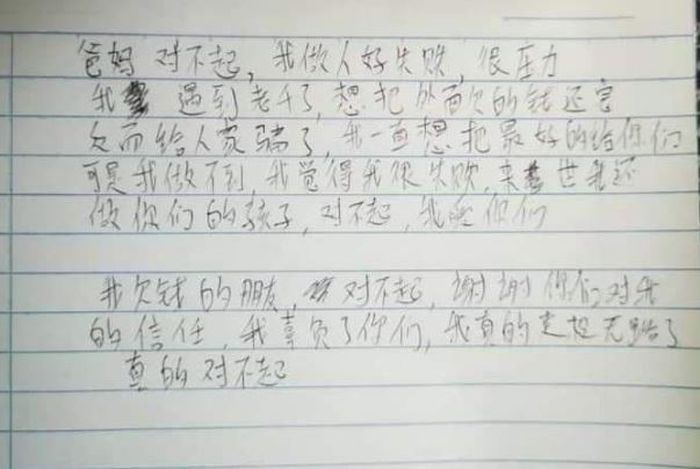 爸妈 对不起，我做人好失败，很压力
我 遇到老千了，想把外面欠的钱还完
欠而给人家骗了，我一直想把最好的给你们
可是我做不到，我觉得我很失败，来世我还
做你们的孩子，对不起，我爱你们
我欠钱的朋友，对不起，谢谢你们对我
的信任，我辜负了你们，我真的走投无路了
真的对不起